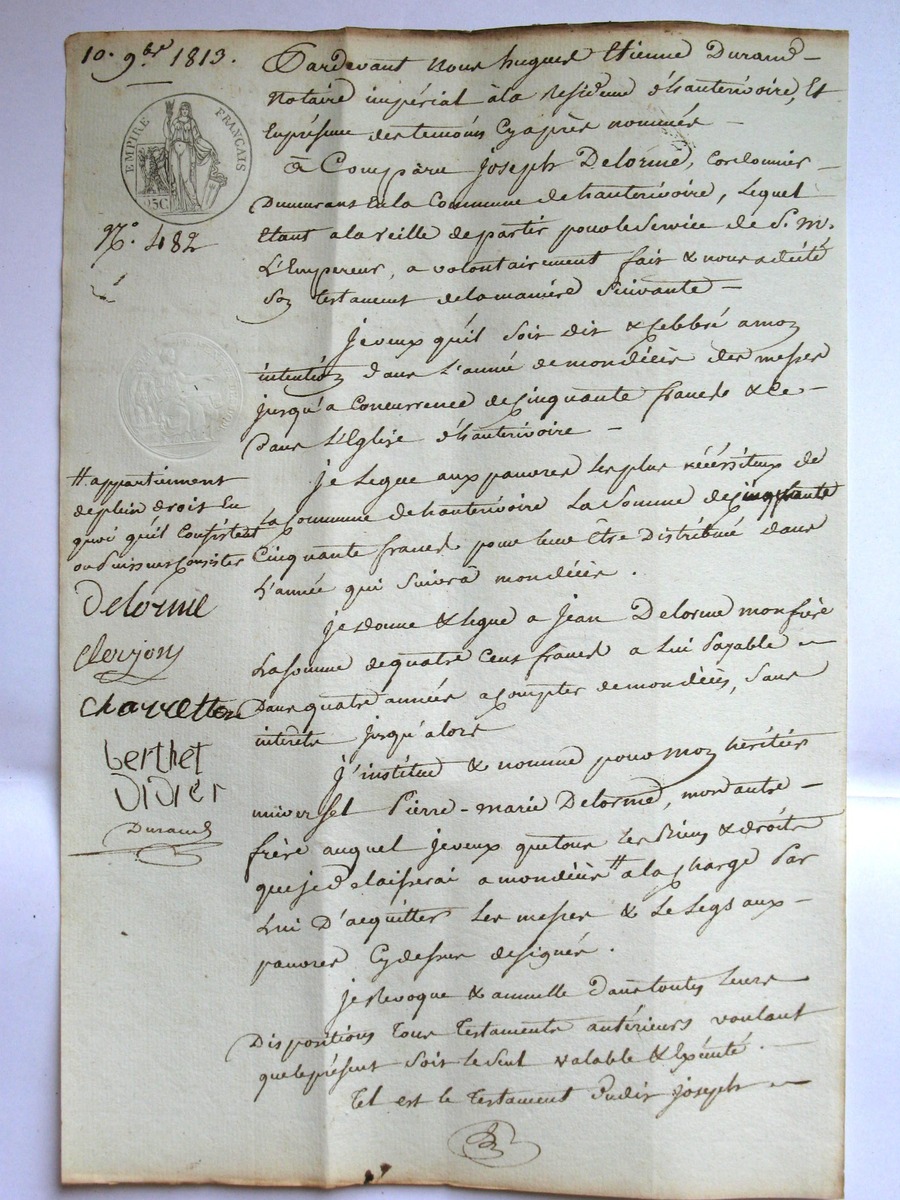 10. 9bre 1813.
EMPIRE FRANÇAIS
25C
N°. 482
Pardevant nous hugues Etienne Durand
notaire impérial à la Residence d'hauterivoire, Et
En présence des temoins Cyaprès nommés
à Comparu joseph Delorme, Cordonnier
Demeurant En la Commune de hauterivoire, Lequel
Etant a la veille de partir pour le Service de S. M.
L'Empereur, a volontairement fait & nous a dicté
Son testament de la manière Suivante
Je veux qu'il Soit dit & Celebré a mon
intention dans L'année de mon décès des messes
jusqu'a Concurrence de Cinquante francs & Ce
dans L'Eglise d'hauterivoire
je Legue aux pauvres Les plus nécéssiteux de
La Commune de hauterivoire La Somme de Cinquante
Cinquante francs pour leur Être Distribué dans
L'année qui Suivra mon décès.
je donne & legue a Jean Delorme mon frère
La Somme de quatre Cent francs a Lui Payable
Dans quatre années a Compter de mon décès, Sans
interêts jusqu'alors
J'institue & nomme pour mon héritier
universel Pierre-marie Delorme, mon autre
frère auquel je veux que tous Les Biens & droits
que je delaisserai a mon décès # a la Charge Par
Lui D'acquitter Les messes & Le Legs aux
pauvres Cy dessus designés.
je Revoque & annulle Dans toutes leurs
Dispositions tous testaments antérieurs voulant
que le présent Soit le Seul valable & Exécuté.
tel est le testament dudit joseph
# appartiennent
de plein droit En
quoi qu'il Consistent
ou Puissent Consister
Delorme
Clerjon
Charretton
berthet
DIDIER
Durand